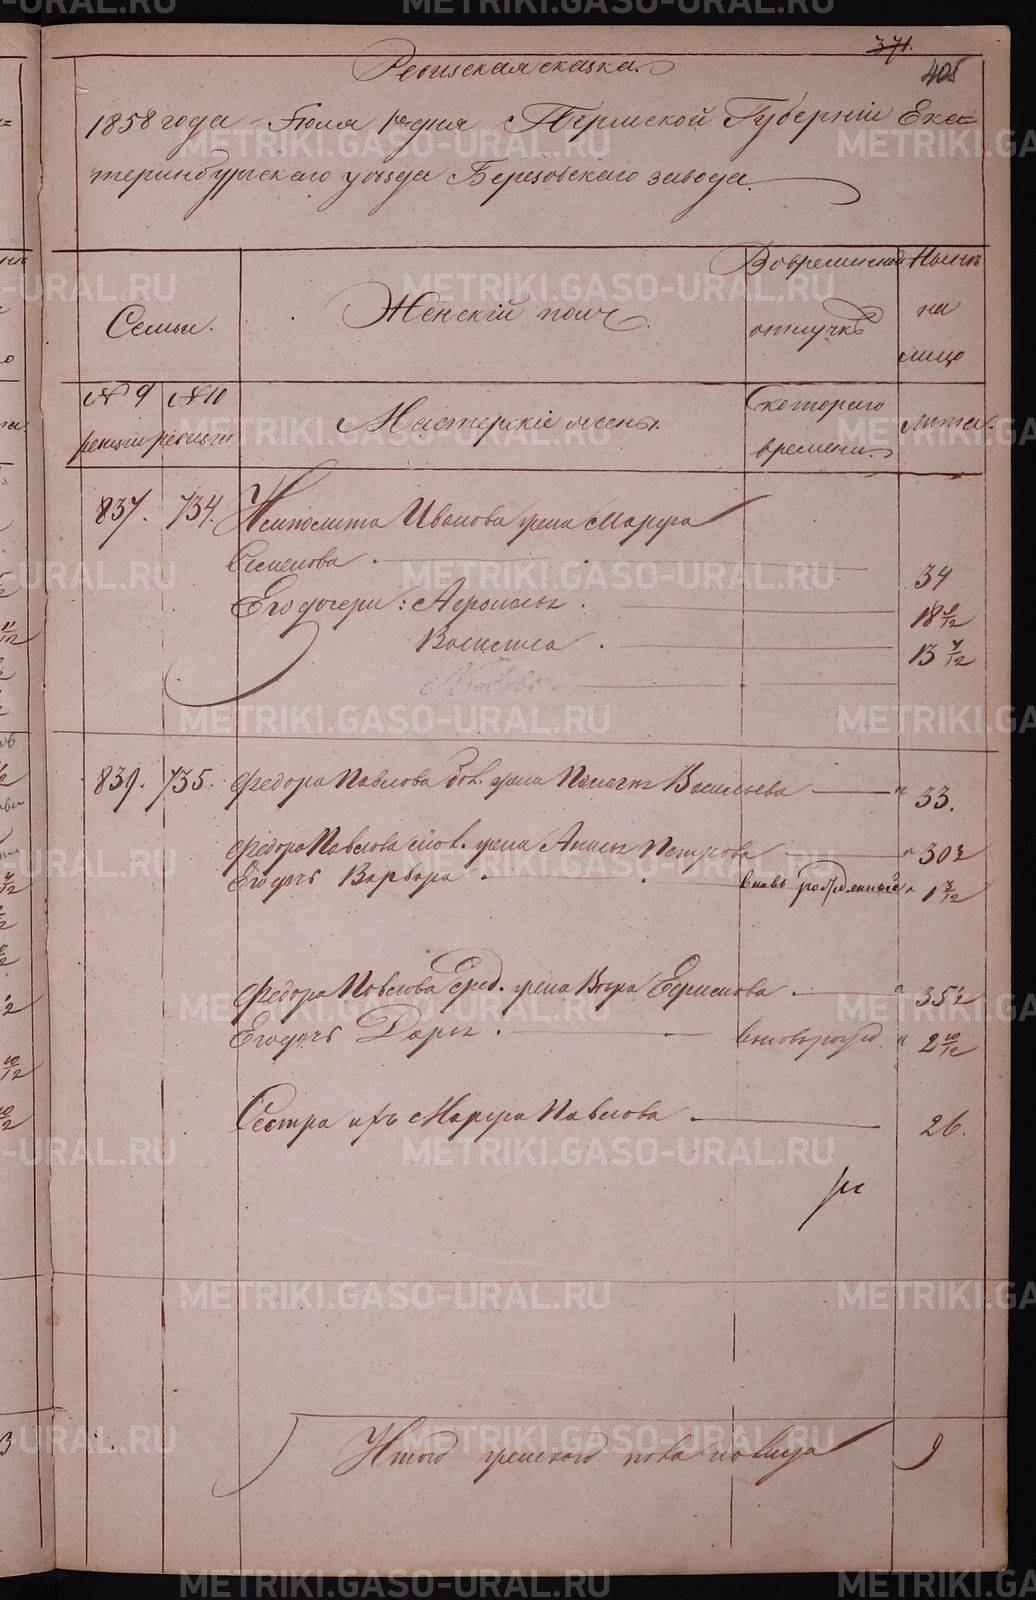 371.
405
Ревизская сказка.
1858 года Июля 1го дня Пермской Губернiи Ека=
теринбургскаго уѣзда Березовскаго завода
Семьи.
Женскiй полъ.
Во временной отлучкѣ
Нынѣ на лицо
№ 9 ревизiи
№ 10 ревизiи
Мастерскiе жены.
С котораго времени.
лѣта.
837. 734. Ипполита Иванова жена Марфа
Семенова 34
Его дочери: 18 9/12
Василиса 13 7/12
Любовь
839. 735. Федора Павлова бол. жена Васильева " 33.
Федора Павлова жена Анисья Петрова " 30½
Его дочь Варвара вновь рожденныя " 1 3/12
Федора Павлова сред. жена Вѣра " 35½
Его дочь Дарья вновь рожд " 2 10/12
Сестра ихъ Марфа Павлова 26.
Итого женского пола на лицо 9
METRIKI.GASO-URAL.RU